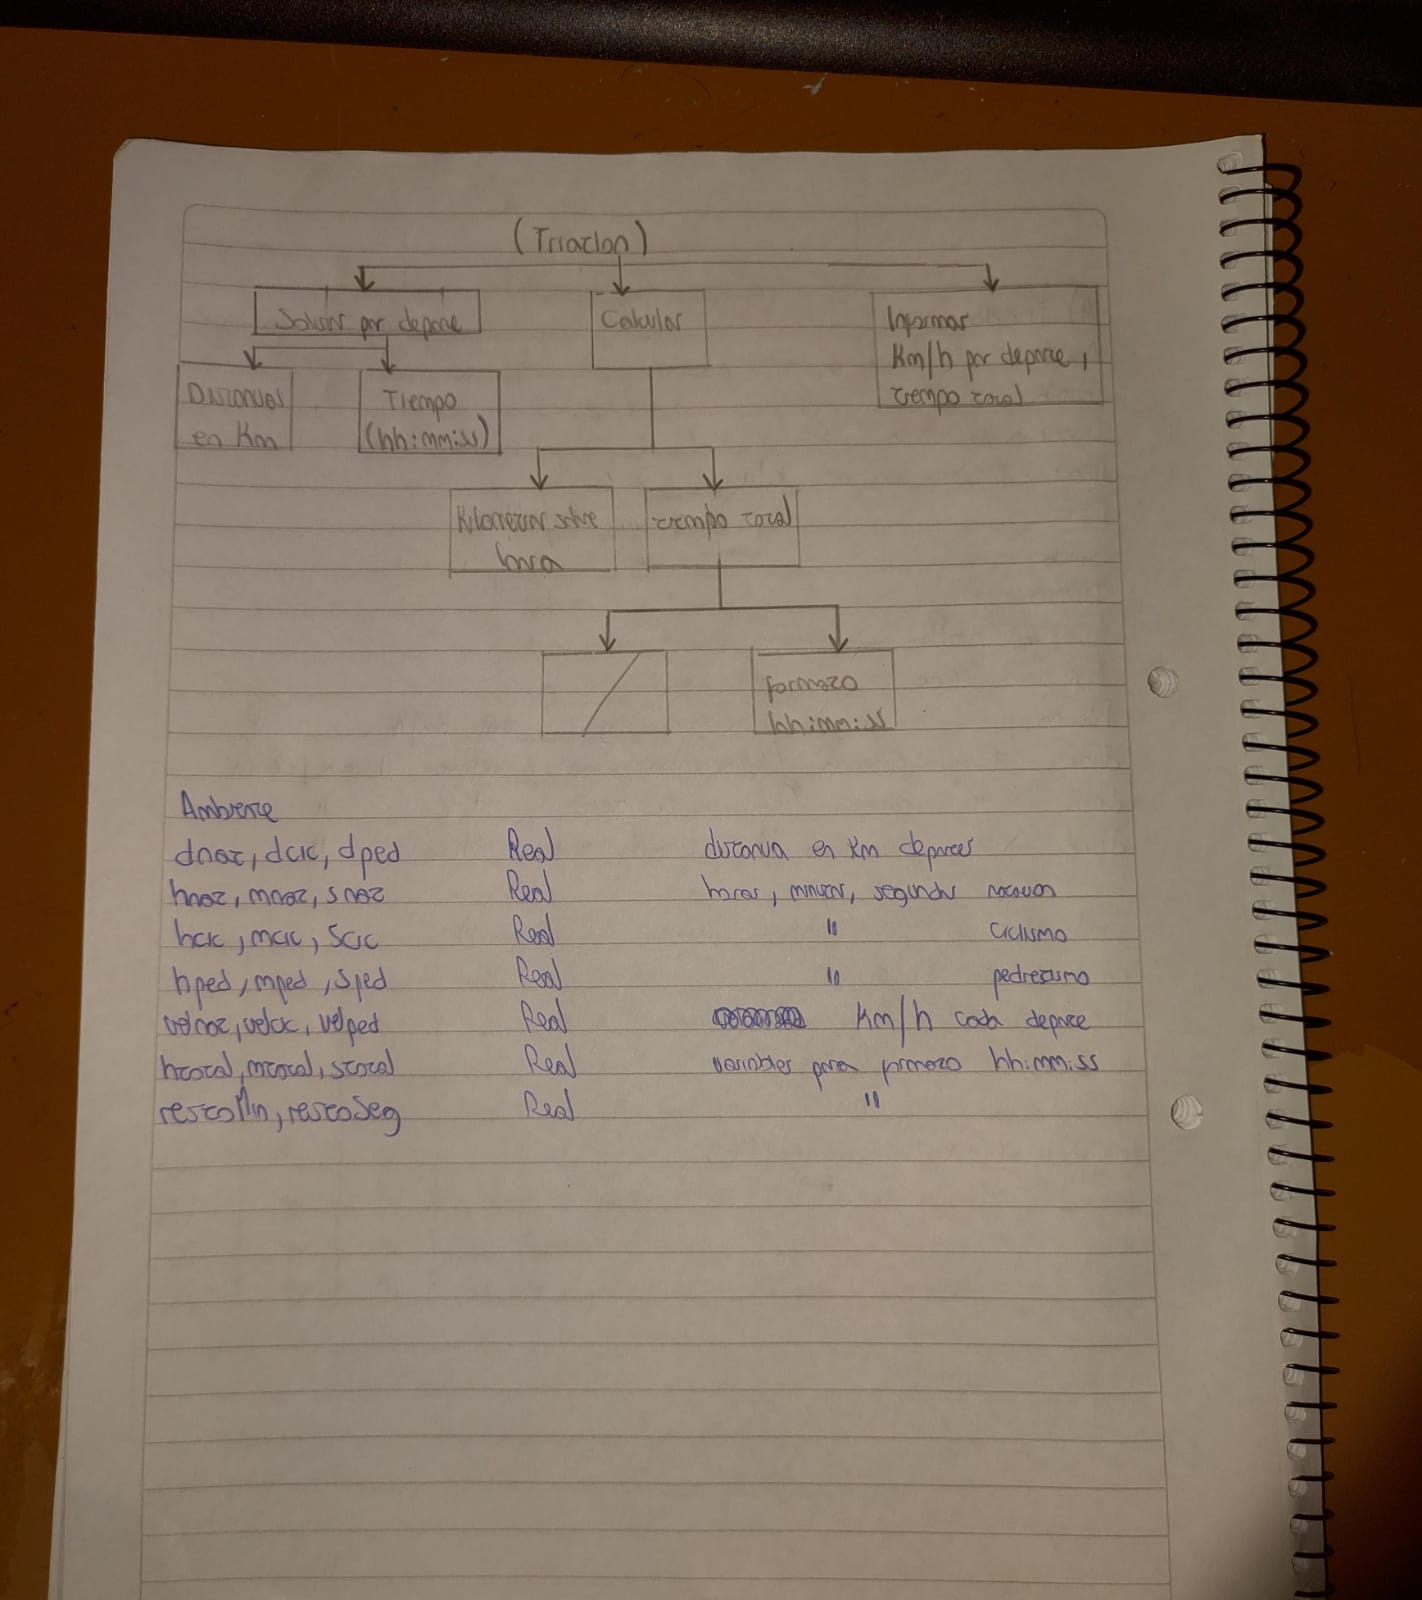 (Triatlon)
Solicitar por deporte
Calcular
Informar
Km/h por deporte,
tiempo total
Distancias
en Km
Tiempo
(hh:mm:ss)
Kilometros sobre
hora
tiempo total
formato
hh:mm:ss
Ambiente
dnat, dcic, dped Real distancia en Km deportes
hnat, mnat, snat Real horas, minutos, segundos natacion
hcic, mcic, scic Real " Ciclismo
hped, mped, sped Real " pedrestismo
velnat, velcic, velped Real Km/h cada deporte
htotal, mtotal, stotal Real variables para formato hh:mm:ss
restoMin, restoSeg Real "